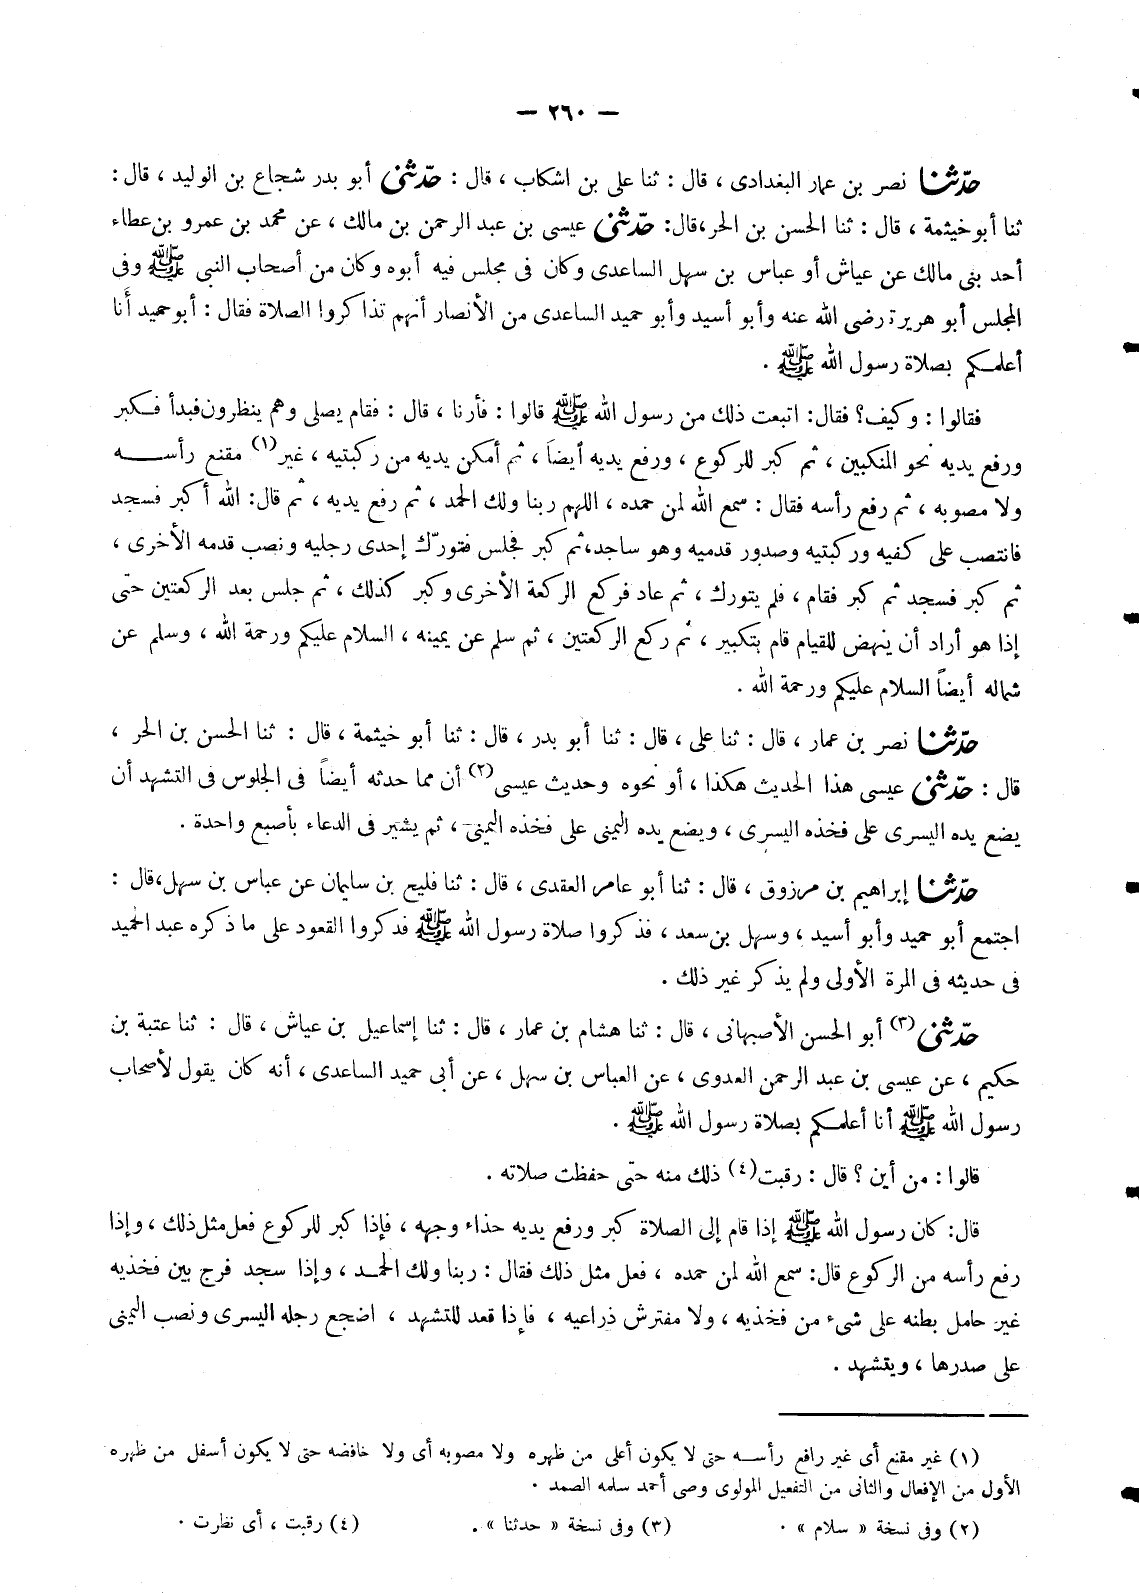 — ٢٦٠ —
حدّثنا نصر بن عمار البغدادى ، قال : ثنا على بن اشكاب ، قال : حدّثنى أبو بدر شجاع بن الوليد ، قال :
ثنا أبو خيثمة ، قال : ثنا الحسن بن الحر، قال: حدّثنى عيسى بن عبد الرحمن بن مالك ، عن محمد بن عمرو بن عطاء
أحد بنى مالك عن عياش أو عباس بن سهل الساعدى وكان فى مجلس فيه أبوه وكان من أصحاب النبى ﷺ وفى
المجلس أبو هريرة رضى الله عنه وأبو أسيد وأبو حميد الساعدى من الأنصار أنهم تذاكروا الصلاة فقال : أبو حميد أنا
أعلمكم بصلاة رسول الله ﷺ .
فقالوا : وكيف؟ فقال: اتبعت ذلك من رسول الله ﷺ قالوا : فأرنا ، قال : فقام يصلى وهم ينظرون فبدأ فكبر
ورفع يديه نحو المنكبين ، ثم كبر للركوع ، ورفع يديه أيضاً ، ثم أمكن يديه من ركبتيه ، غير(١) مقنع رأسه
ولا مصوبه ، ثم رفع رأسه فقال : سمع الله لمن حمده ، اللهم ربنا ولك الحمد ، ثم رفع يديه ، ثم قال: الله أكبر فسجد
فانتصب على كفيه وركبتيه وصدور قدميه وهو ساجد، ثم كبر فجلس فتورّك إحدى رجليه ونصب قدمه الأخرى ،
ثم كبر فسجد ثم كبر فقام ، فلم يتورك ، ثم عاد فركع الركعة الأخرى وكبر كذلك ، ثم جلس بعد الركعتين حتى
إذا هو أراد أن ينهض للقيام قام بتكبير ، ثم ركع الركعتين ، ثم سلم عن يمينه ، السلام عليكم ورحمة الله ، وسلم عن
شماله أيضاً السلام عليكم ورحمة الله .
حدّثنا نصر بن عمار ، قال : ثنا على ، قال : ثنا أبو بدر ، قال : ثنا أبو خيثمة ، قال : ثنا الحسن بن الحر ،
قال : حدّثنى عيسى هذا الحديث هكذا ، أو نحوه وحديث عيسى(٢) أن مما حدثه أيضاً فى الجلوس فى التشهد أن
يضع يده اليسرى على فخذه اليسرى ، ويضع يده اليمنى على فخذه اليمنى ، ثم يشير فى الدعاء بأصبع واحدة .
حدّثنا إبراهيم بن مرزوق ، قال : ثنا أبو عامر العقدى ، قال : ثنا فليح بن سليمان عن عباس بن سهل، قال :
اجتمع أبو حميد وأبو أسيد ، وسهل بن سعد ، فذكروا صلاة رسول الله ﷺ فذكروا القعود على ما ذكره عبد الحميد
فى حديثه فى المرة الأولى ولم يذكر غير ذلك .
حدّثنى(٣) أبو الحسن الأصبهانى ، قال : ثنا هشام بن عمار ، قال : ثنا إسماعيل بن عياش ، قال : ثنا عتبة بن
حكيم ، عن عيسى بن عبد الرحمن العدوى ، عن العباس بن سهل ، عن أبى حميد الساعدى ، أنه كان يقول لأصحاب
رسول الله ﷺ أنا أعلمكم بصلاة رسول الله ﷺ .
قالوا : من أين ؟ قال : رقبت(٤) ذلك منه حتى حفظت صلاته .
قال: كان رسول الله ﷺ إذا قام إلى الصلاة كبر ورفع يديه حذاء وجهه ، فإذا كبر للركوع فعل مثل ذلك ، وإذا
رفع رأسه من الركوع قال: سمع الله لمن حمده ، فعل مثل ذلك فقال : ربنا ولك الحمد ، وإذا سجد فرج بين فخذيه
غير حامل بطنه على شىء من فخذيه ، ولا مفترش ذراعيه ، فإذا قعد للتشهد ، اضجع رجله اليسرى ونصب اليمنى
على صدرها ، ويتشهد .
(١) غير مقنع أى غير رافع رأسه حتى لا يكون أعلى من ظهره ولا مصوبه أى ولا خافضه حتى لا يكون أسفل من ظهره
الأول من الإفعال والثانى من التفعيل المولوى وصى أحمد سلمه الصمد .
(٢) وفى نسخة « سلام » . (٣) وفى نسخة « حدثنا » . (٤) رقبت ، أى نظرت .